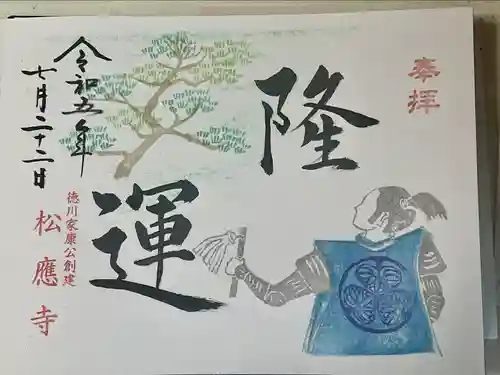 奉拝
隆運
徳川家康公創建
松應寺
令和五年
七月二十二日